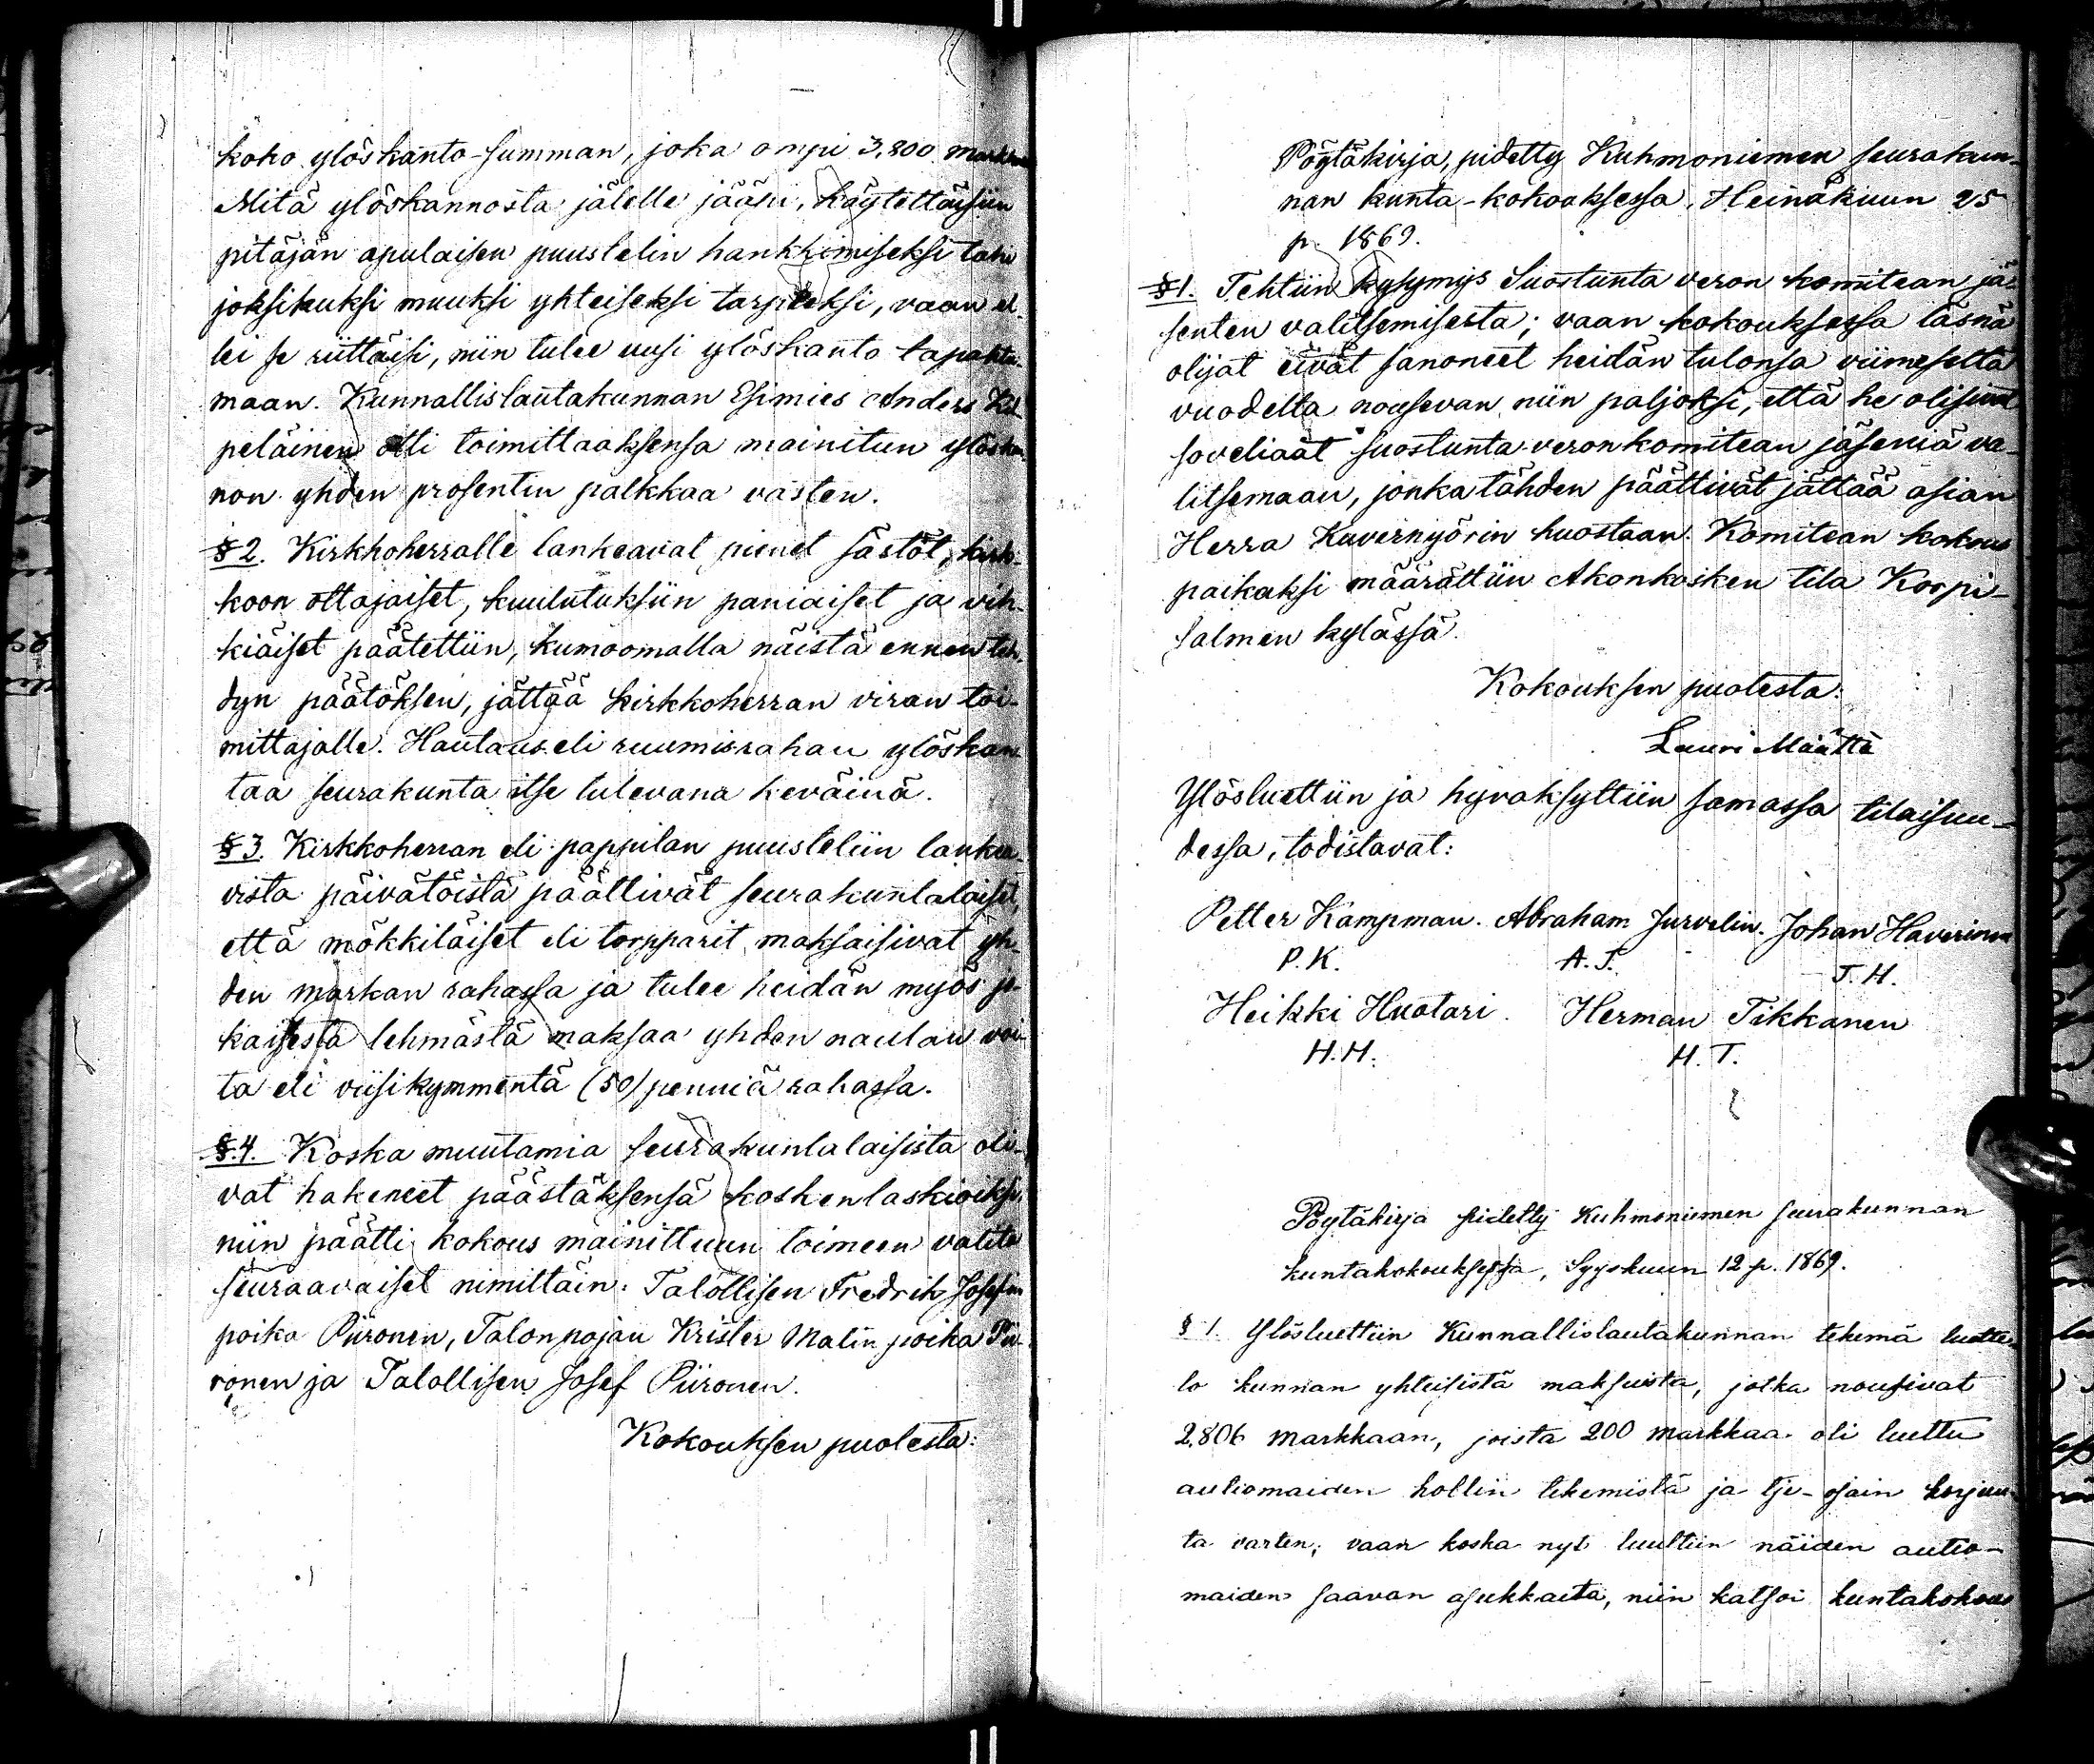 koko ylöskanto-summan, joka ompi 3,800 markkaa
Mitä ylöskannosta jälelle jääpi, käytettäisiin
pitäjän apulaisen puustelin hankkimiseksi tahi
joksikuksi muuksi yhteiseksi tarpeeksi, vaan el-
lei se riittäisi, niin tulee uusi ylöskanto tapahtu-
maan. Kunnallislautakunnan Esimies Anders Kil
peläinen otti toimittaaksensa mainitun ylöskan-
non yhden prosentin palkkaa vasten.
§ 2. Kirkkoherralle lankeavat pienet säätöt, kirk-
koon ottajaiset, kuulutuksiin paniaiset ja vih-
kiäiset päätettiin, kumoomalla näistä ennen teh-
dyn päätöksen, jättää kirkkoherran viran toi-
mittajalle. Hautaus eli ruumisrahan ylöskan-
taa seurakunta itse tulevana keväinä.
§ 3. Kirkkoherran eli pappilan puusteliin lankea-
vista päivätöistä päättivät seurakuntalaiset,
että mökkiläiset eli torpparit maksaisivat yh-
den markan rahassa ja tulee heidän myös jo-
kaisesta lehmästä maksaa yhden naulan voi-
ta eli viisikymmentä (50) penniä rahassa.
§.4. Koska muutamia seurakuntalaisista oli-
vat hakeneet päästäksensä koskenlaskioiksi,
niin päätti kokous mainittuun toimeen valita
seuraavaiset nimittäin: Talollisen Fredrik Josefin
poika Piironen, Talonpojan Krister Matin poika Pii-
ronen ja Talollisen Josef Piironen.
Kokouksen puolesta:
Pöytäkirja, pidetty Kuhmoniemen seurakun-
nan kunta-kokouksessa, Heinäkuun 25
p. 1869.
§ 1. Tehtiin kysymys Suostunta veron komitean jä-
senten valitsemisesta; vaan kokouksessa läsnä
olijat eivät sanoneet heidän tulonsa viimeseltä
vuodelta nousevan niin paljoksi, että he olisivat
soveliaat suostunta-veronkomitean jäseniä va-
litsemaan, jonka tähden päättivät jättää asian
Herra Kuvernyörin huostaan. Komitean kokous
paikaksi määrättiin Akonkosken tila Korpi-
salmen kylässä.
Kokouksen puolesta:
Lauri Määttä
Ylösluettiin ja hyvaksyttiin samassa tilaisuu-
dessa, todistavat:
Petter Kampman. Abraham Jurvelin. Johan Haverinen
P. K. A. J. J. H.
Heikki Huotari. Herman Tikkanen
H. H. H. T.
Pöytäkirja pidetty Kuhmoniemen seurakunnan
kuntakokouksessa, Syyskuun 12 p. 1869.
§ 1. Ylösluettiin Kunnallislautakunnan tekemä luette-
lo kunnan yhteisistä maksuista, jotka nousivat
2,806 markkaan, joista 200 markkaa oli luettu
autiomaiden hollin tekemistä ja tje-osain korjuu-
ta varten; vaan koska nyt luultiin näiden autio-
maiden saavan asukkaita, niin katsoi kuntakokous